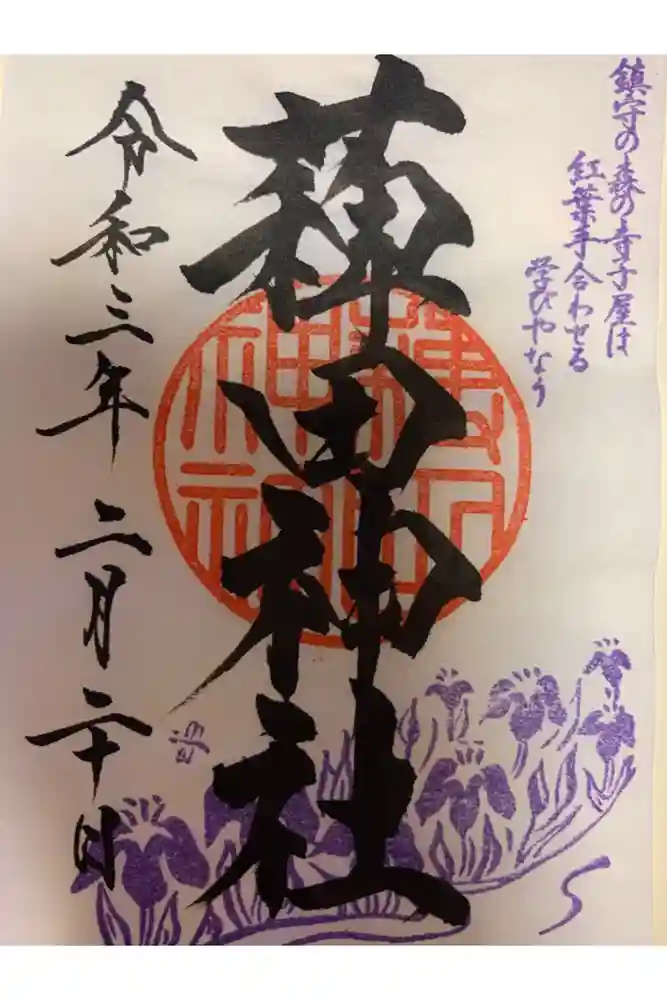 鎮守の森の寺子屋は
紅葉手合わせる
学びやなり
薭田神社
薭田神社
令和三年 二月二十日